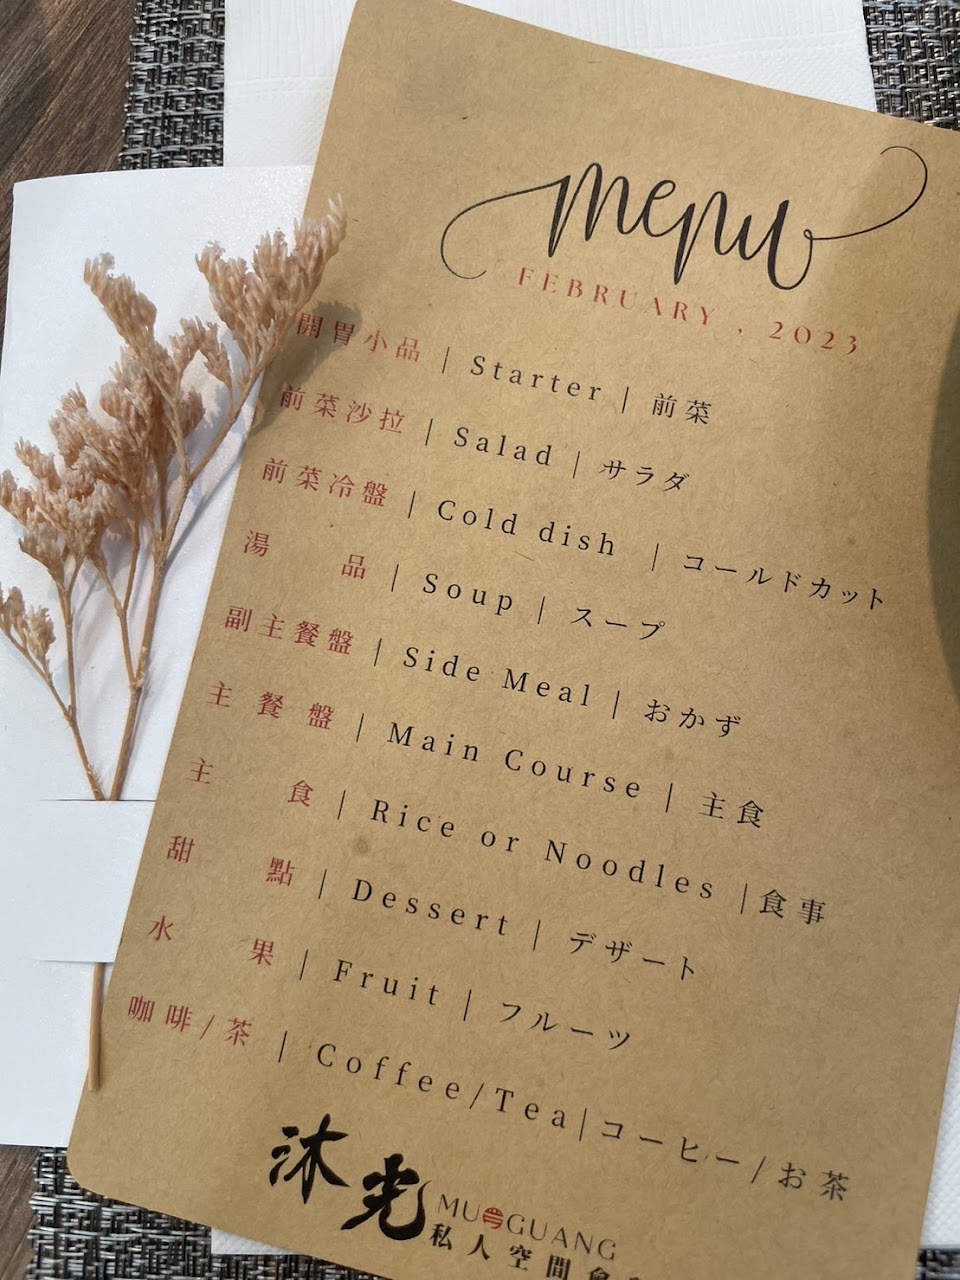 menu
FEBRUARY , 2023
開胃小品 | Starter | 前菜
前菜沙拉 | Salad | サラダ
前菜冷盤 | Cold dish | コールドカット
湯品 | Soup | スープ
副主餐盤 | Side Meal | おかず
主餐盤 | Main Course | 主食
主食 | Rice or Noodles | 食事
甜點 | Dessert | デザート
水果 | Fruit | フルーツ
咖啡/茶 | Coffee/Tea | コーヒー/お茶
沐光 MU GUANG
私人空間